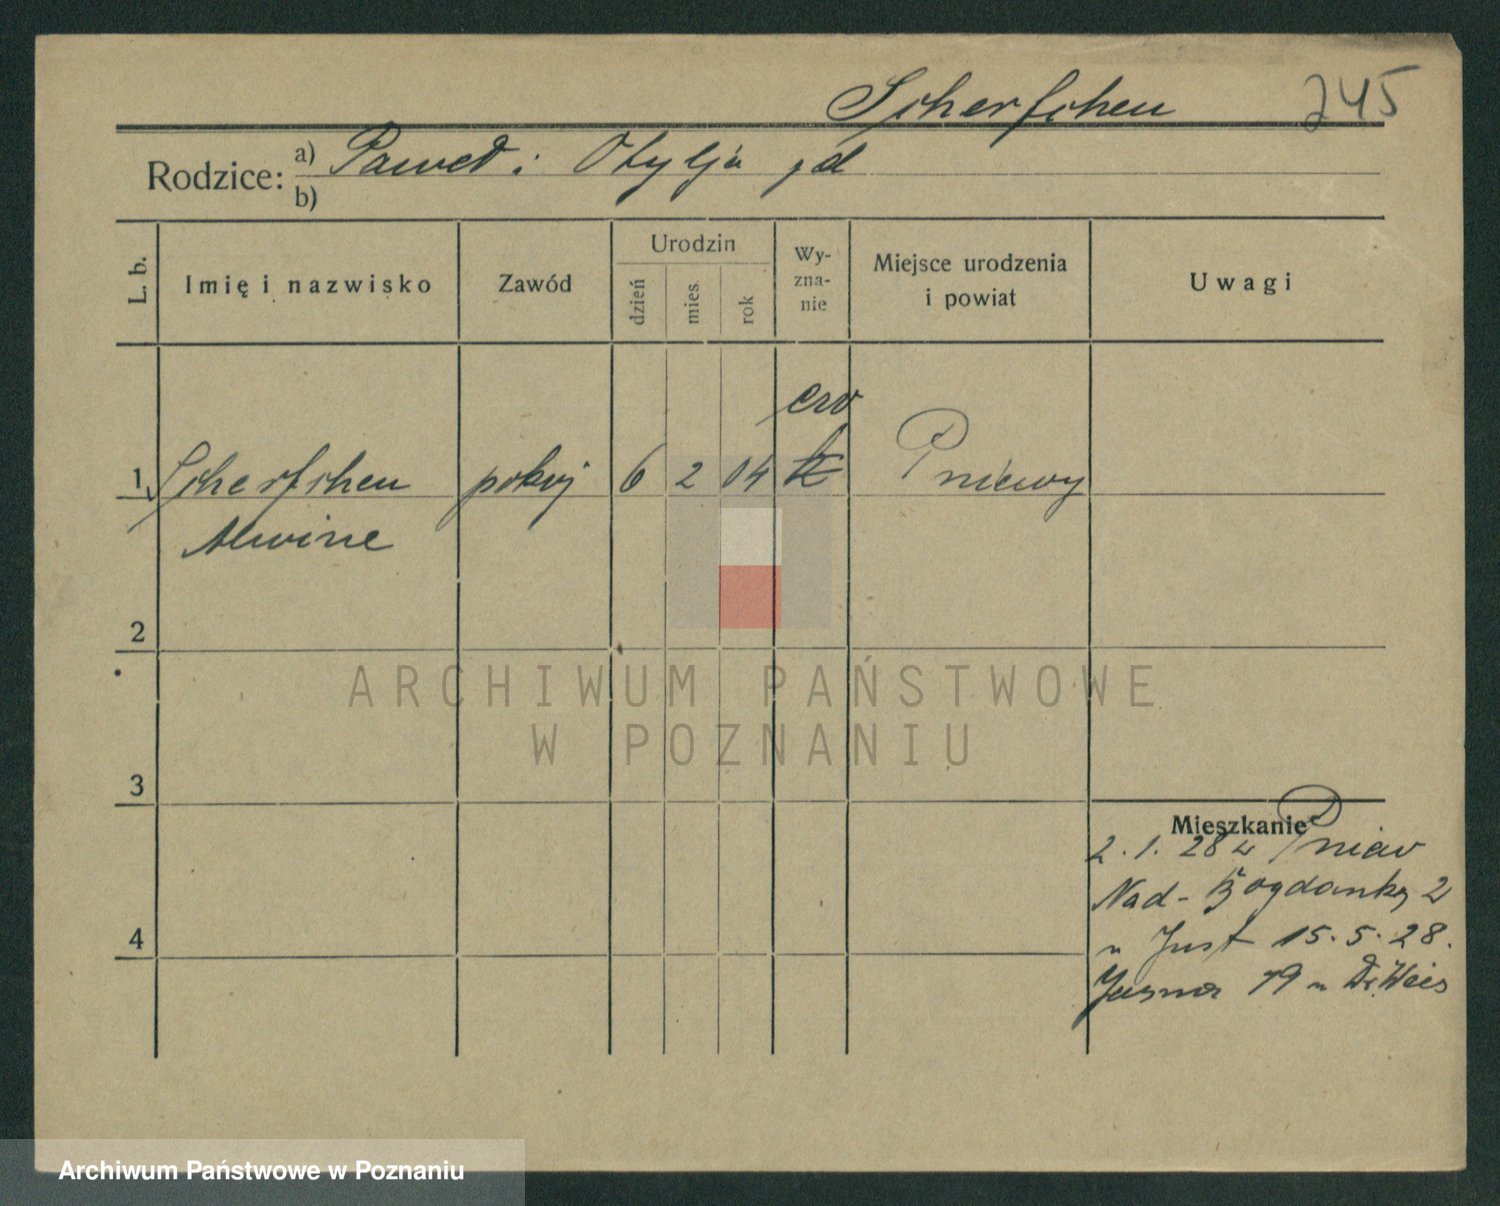 Scherfchen 245
Rodzice: a) Paweł i Otylja
b)
L. b.
Imię i nazwisko
Zawód
Urodzin
dzień
mies.
rok
Wy-
zna-
nie
Miejsce urodzenia
i powiat
Uwagi
ew
1 Scherfchen pokoj 6 2 04 k Pniewy
Alwine
2
3
4
Mieszkanie
2. 1. 28 z Pniew
Nad-Bogdanką 2
u Just 15. 5. 28.
Jasna 19 u Dr. Weis
ARCHIWUM PAŃSTWOWE
W POZNANIU
Archiwum Państwowe w Poznaniu